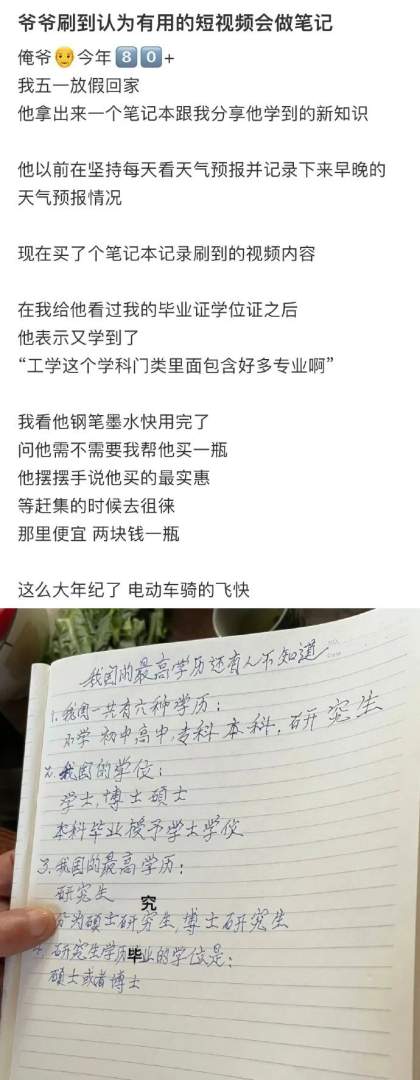 爷爷刷到认为有用的短视频会做笔记
俺爷👴今年8️⃣0️⃣+
我五一放假回家
他拿出来一个笔记本跟我分享他学到的新知识
他以前在坚持每天看天气预报并记录下来早晚的
天气预报情况
现在买了个笔记本记录刷到的视频内容
在我给他看过我的毕业证学位证之后
他表示又学到了
“工学这个学科门类里面包含好多专业啊”
我看他钢笔墨水快用完了
问他需不需要我帮他买一瓶
他摆摆手说他买的最实惠
等赶集的时候去徂徕
那里便宜 两块钱一瓶
这么大年纪了 电动车骑的飞快
我国的最高学历还有人不知道
1. 我国一共有六种学历：
小学 初中高中，专科 本科，研究生
2. 我国的学位：
学士，博士硕士
本科毕业授予学士学位
3. 我国的最高学历：
研究生
究
分为硕士研究生，博士研究生
研究生学历毕业的学位是：
硕士或者博士